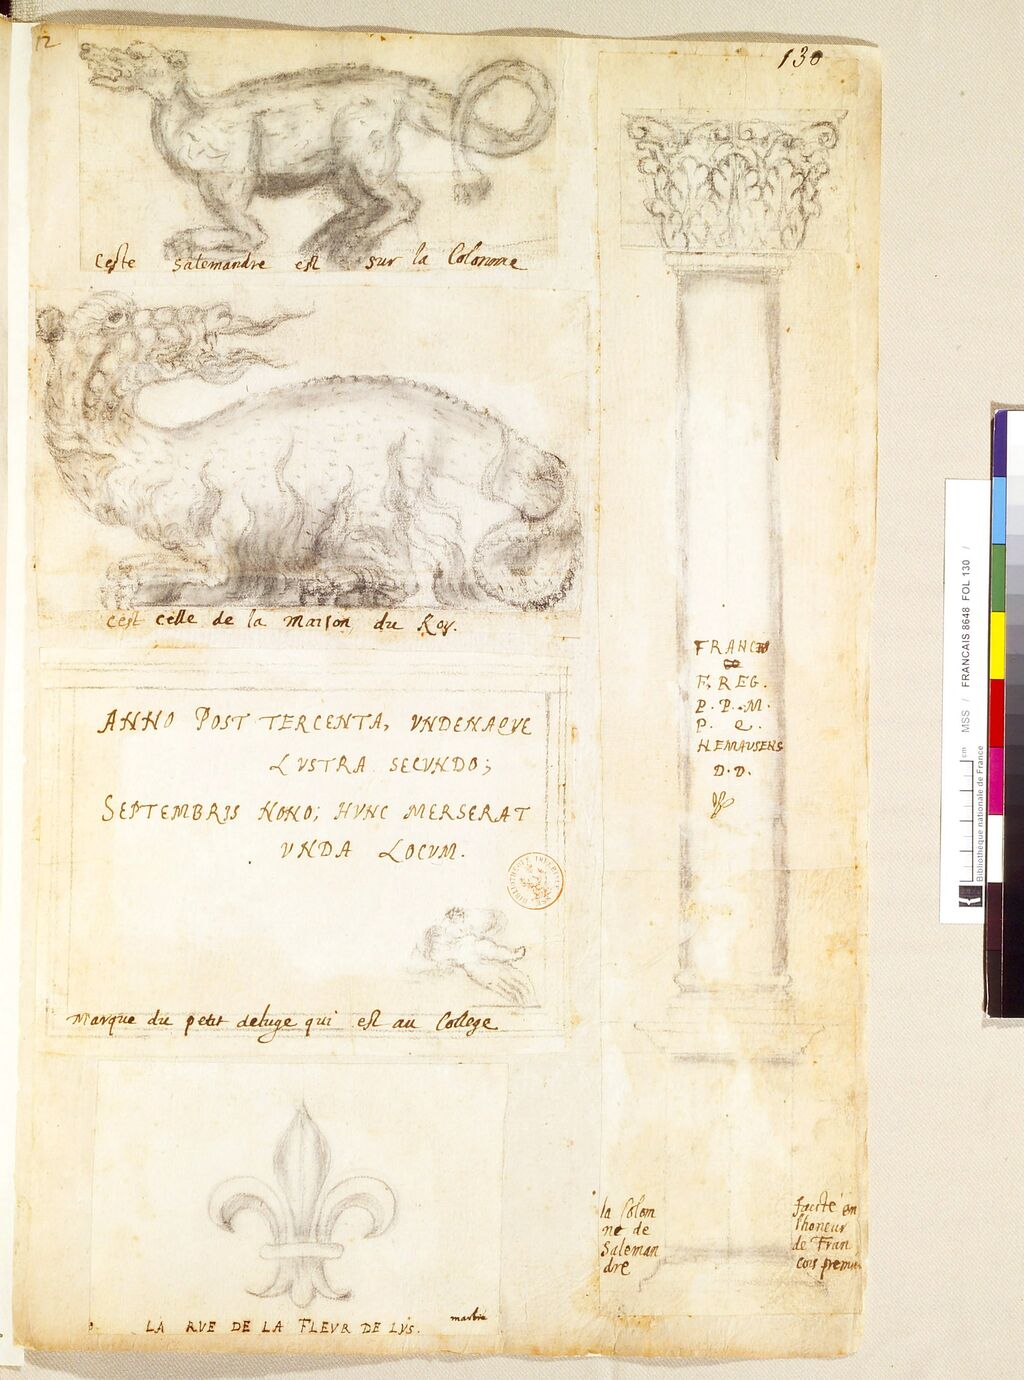 12
130
Ceste Salemandre est sur la Colonne
cest celle de la maison du Roy.
ANNO POST TERCENTA, VNDENAQVE
LVSTRA SECVNDO;
SEPTEMBRIS NONO; HVNC MERSERAT
VNDA LOCVM.
Marque du petit deluge qui est au College
LA RVE DE LA FLEVR DE LYS.
marbre
FRANCI
F. REG.
P. P. M.
P. Q.
NEMAUSENS
D. D.
la Colom
ne de
Saleman
dre
faicte en
lhoneur
de Fran
cois premier
MSS / FRANCAIS 8648 FOL 130 /
cm
Bibliothèque nationale de France